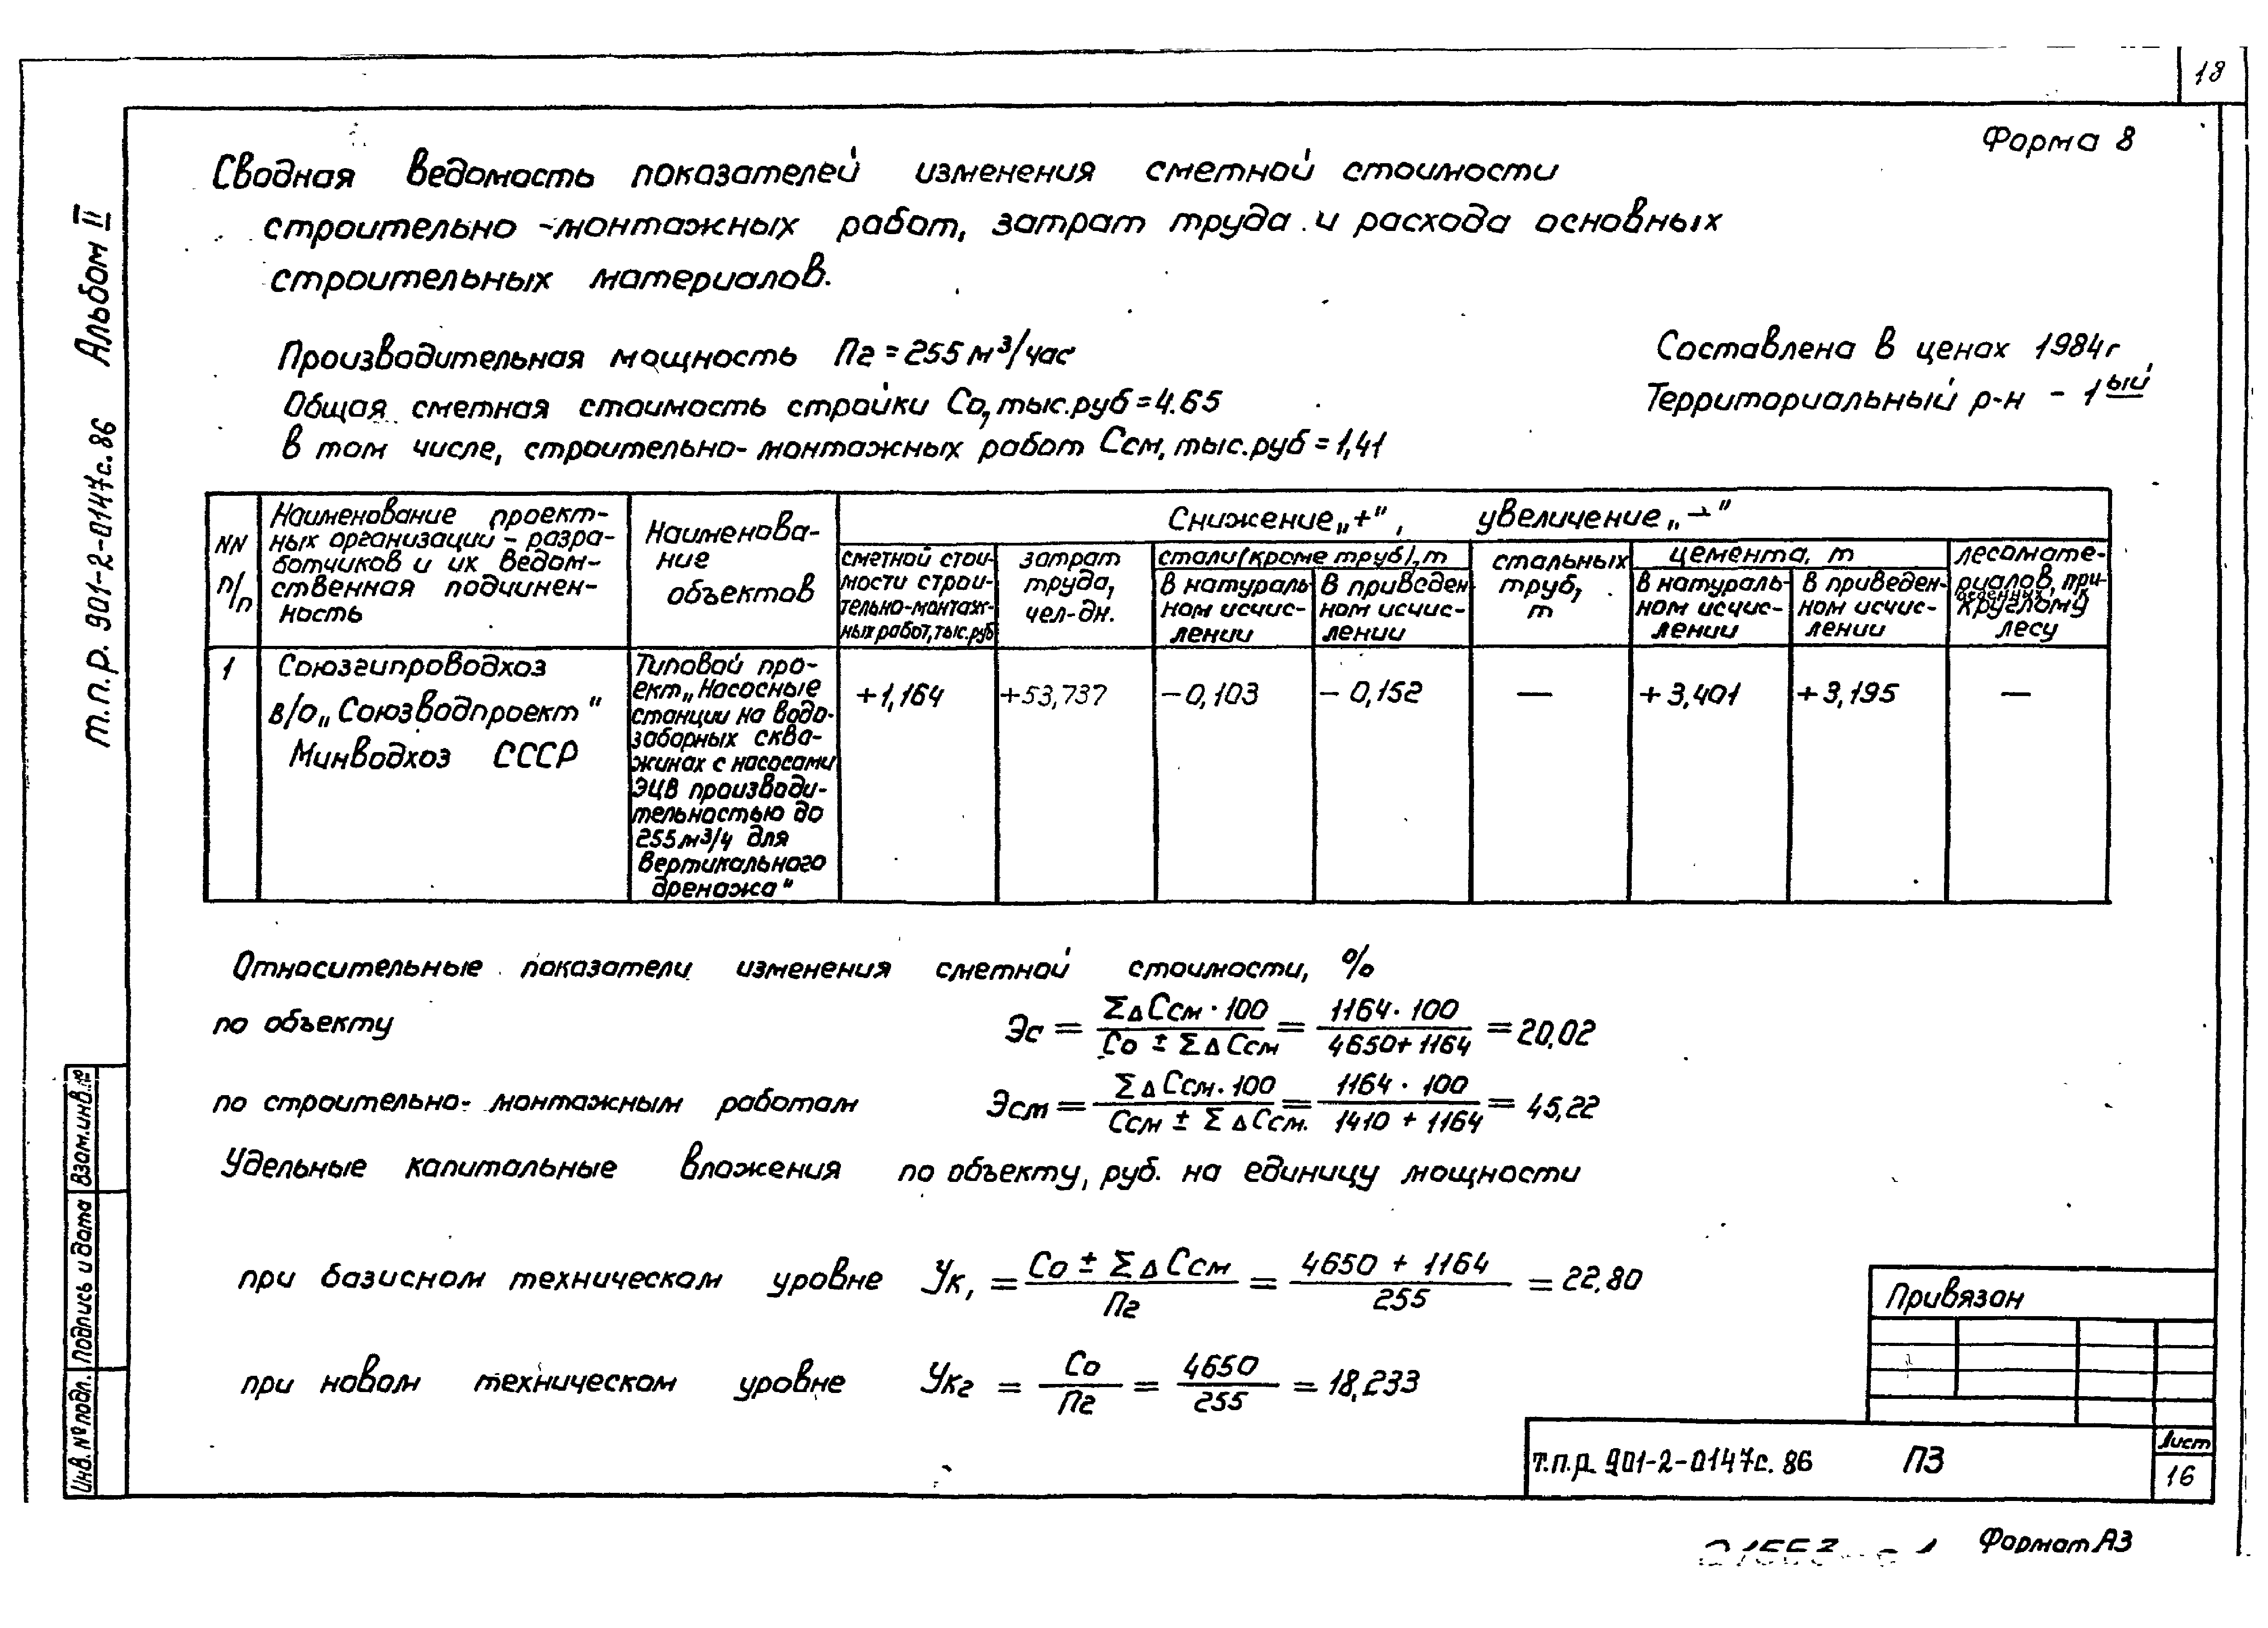 18
Форма 8
Сводная ведомость показателей изменения сметной стоимости
строительно-монтажных работ, затрат труда и расхода основных
строительных материалов.
Производительная мощность Пг = 255 м³/час
Составлена в ценах 1984г
Общая сметная стоимость стройки Со, тыс.руб = 4.65
Территориальный р-н - 1ый
в том числе, строительно-монтажных работ Ссм, тыс.руб = 1,41
NN п/п
Наименование проект-
ных организации - разра-
ботчиков и их ведом-
ственная подчинен-
ность
Наименова-
ние
объектов
Снижение „+", увеличение „-"
сметной стои-
мости строи-
тельно-монтаж-
ных работ, тыс.руб
затрат
труда,
чел-дн.
стали (кроме труб), т
в натураль-
ном исчис-
лении
в приведен
ном исчис-
лении
стальных
труб,
т
цемента, т
в натураль-
ном исчис-
лении
в приведен-
ном исчис-
лении
лесомате-
риалов, при-
веденных к
круглому
лесу
1
Союзгипроводхоз
в/о „Союзводпроект"
Минводхоз СССР
Типовой про-
ект „Насосные
станции на водо-
заборных сква-
жинах с насосами
ЭЦВ производи-
тельностью до
255 м³/ч для
вертикального
дренажа"
+1,164
+53,737
-0,103
-0,152
—
+3,401
+3,195
—
Относительные показатели изменения сметной стоимости, %
по объекту Эс = ΣΔСсм · 100 / Со ± ΣΔСсм = 1164 · 100 / 4650 + 1164 = 20,02
по строительно-монтажным работам Эсм = ΣΔСсм. 100 / Ссм ± ΣΔСсм. = 1164 · 100 / 1410 + 1164 = 45,22
Удельные капитальные вложения по объекту, руб. на единицу мощности
при базисном техническом уровне Ук₁ = Со ± ΣΔСсм / Пг = 4650 + 1164 / 255 = 22.80
при новом техническом уровне Укг = Со / Пг = 4650 / 255 = 18,233
Привязан
т.п.р. 901-2-0147с.86 ПЗ
Лист
16
Формат А3
т.п.р. 901-2-0147с.86 Альбом II
Взам.инв.№
Подпись и дата
Инв. № подл.